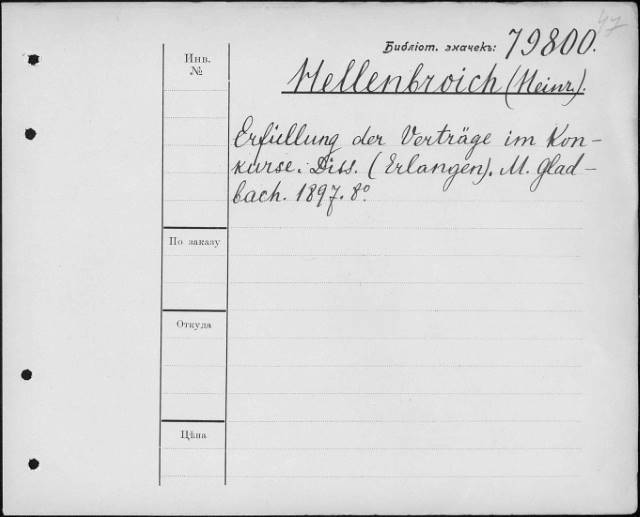 47
Библіот. значекъ: 79800.
Инв.
№
Hellenbroich (Heinr.).
Erfüllung der Verträge im Kon-
kurse. Diss. (Erlangen). M. Glad-
bach. 1897. 8º
По заказу
Откуда
Цѣна